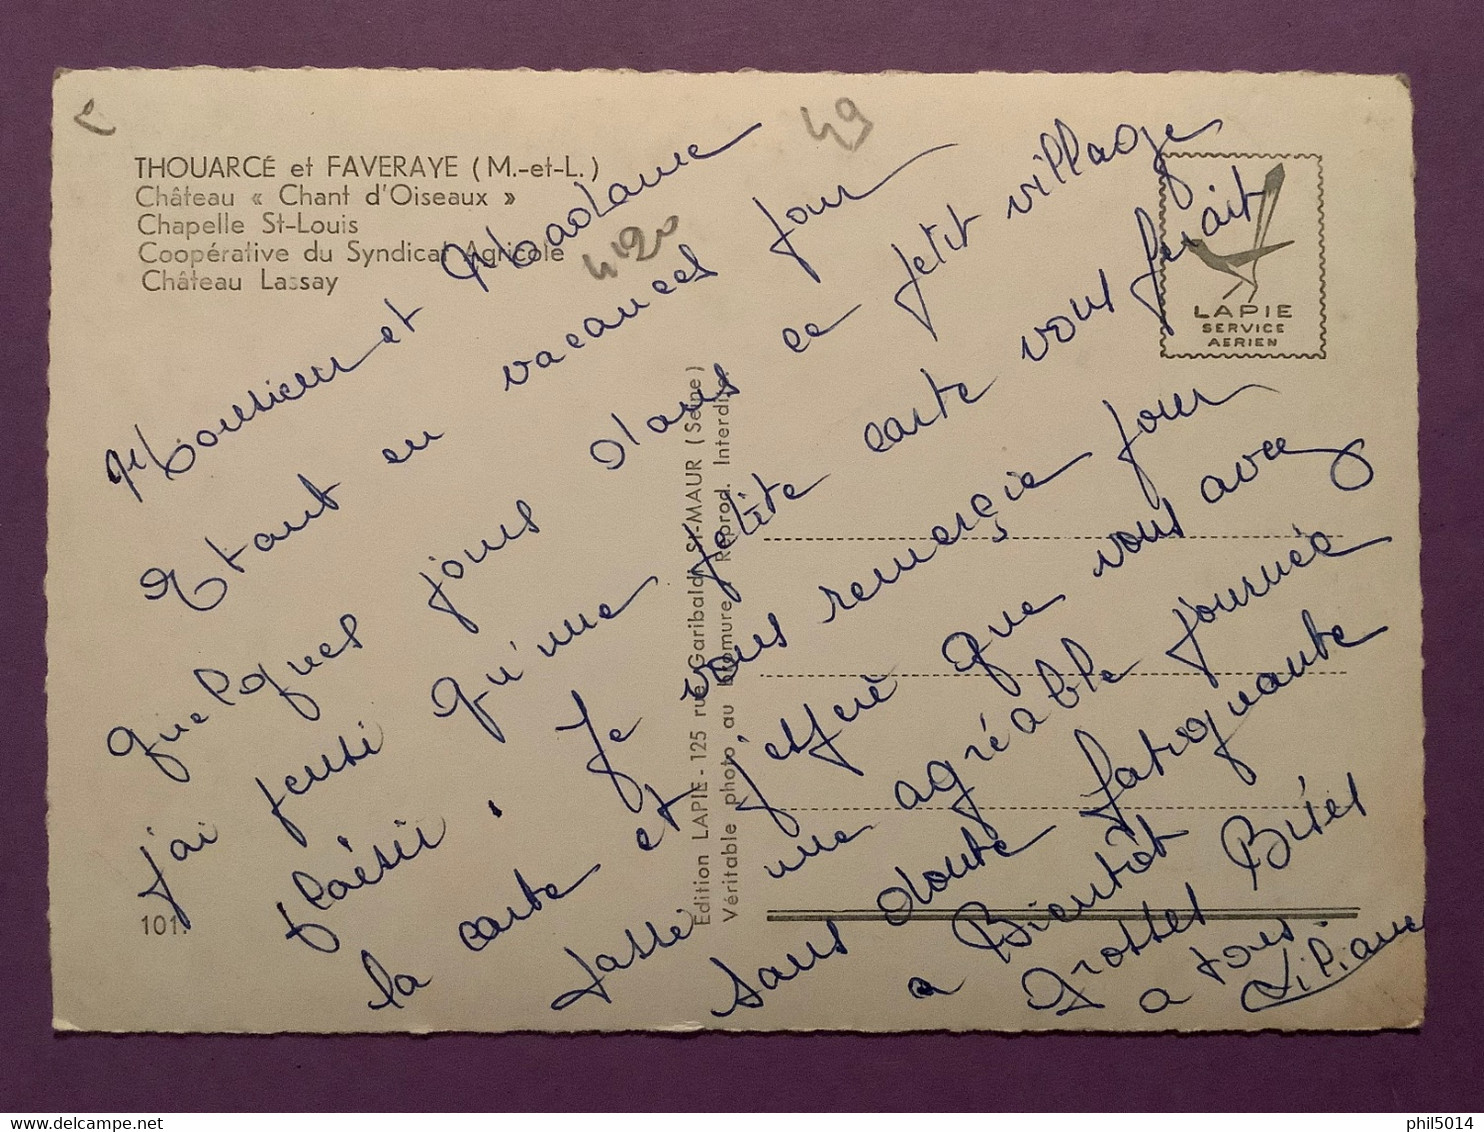 THOUARCÉ et FAVERAYE (M.-et-L.)
Château « Chant d'Oiseaux »
Chapelle St-Louis
Coopérative du Syndicat Agricole
Château Lassay
49
4120
LAPIE
SERVICE
AERIEN
Monsieur et Madame
Etant en vacances pour
quelques jours dans ce petit village
j'ai pensé qu'une petite carte vous ferait
plaisir. Je vous remerçie pour
la carte et j'espère que vous avez
passé une agréable journée
sans doute fatiguante
a Bientôt
Grosses Bises
a tous.
Liliane
Edition LAPIE - 125 rue Garibaldi, St-MAUR (Seine)
Véritable photo au bromure - Reprod. Interdite
101.
phil5014